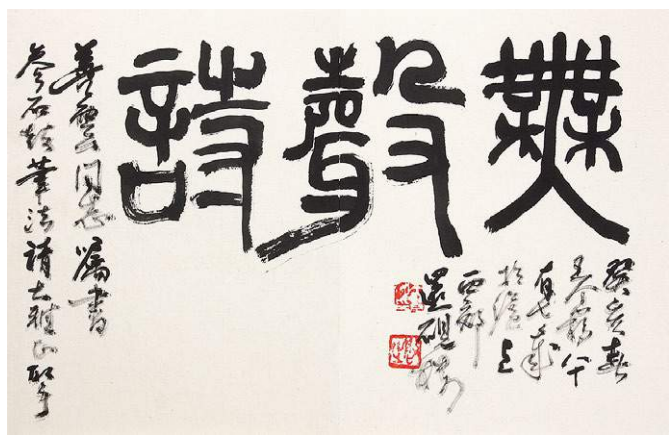 無聲詩
癸亥春
王个簃八十
有七歲
於滬上
西郊
還硯樓
同志囑書
參石鼓筆法請大雅正